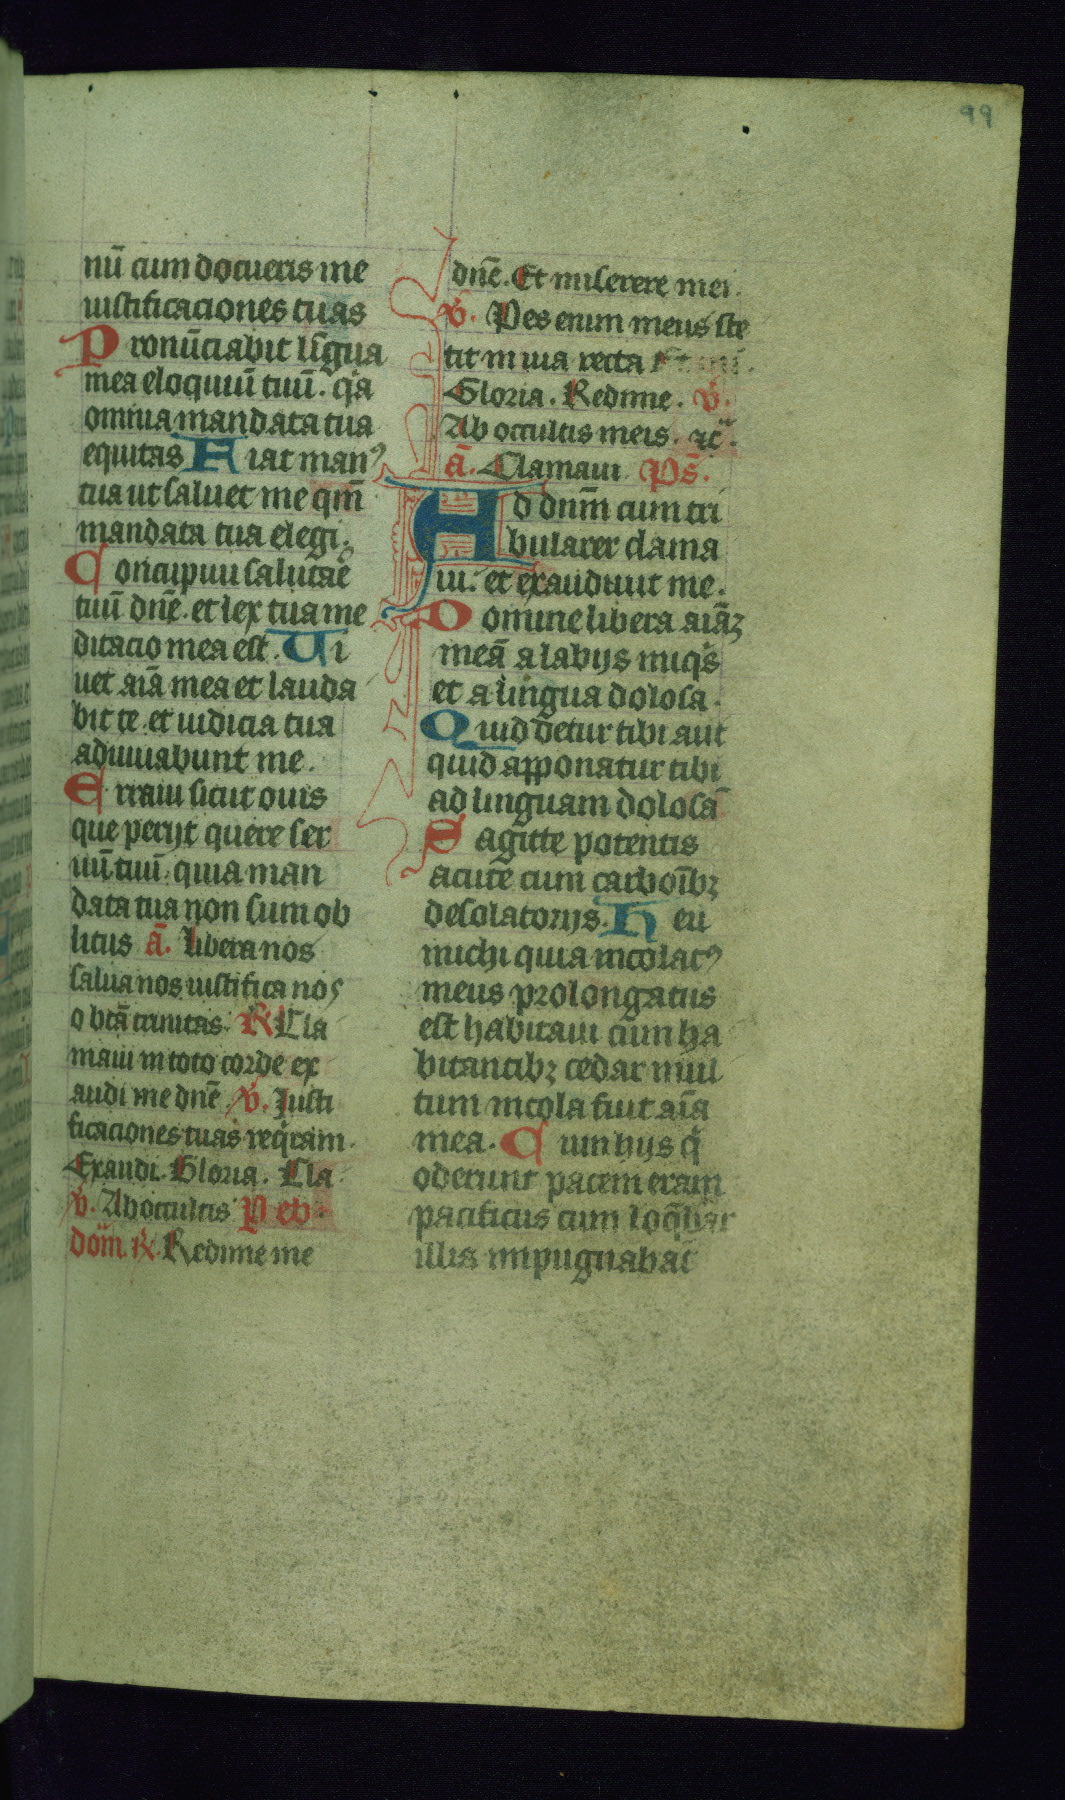 99
nū cum docueris me
iustificaciones tuas
Pronūciabit līgua
mea eloquiū tuū. qᷓa
omnia mandata tua
equitas Fiat manꝰ
tua ut saluet me qm̄
mandata tua elegi.
Concupiui salutare
tuū dn̄e. et lex tua me
ditacio mea est. Ui
uet aīa mea et lauda
bit te. et iudicia tua
adiuuabunt me.
Erraui sicut ouis
que perijt quere ser
uū tuū. quia man
data tua non sum ob
litus ā. Libera nos
salua nos iustifica nos
o btā trinitas. R Cla
maui in toto corde ex
audi me dn̄e V. Justi
ficaciones tuas reqͥram.
Exaudi. Gloria. Cla
V. Ab occultis P eb.
dom̄. R. Redime me
dn̄e. Et miserere mei.
V. Pes enim meus ste
tit in uia recta Et
Gloria. Redime. V.
Ab occultis meis. ⁊c̄.
ā. Clamaui Ps̄.
Ad dnm̄ cum tri
bularer clama
ui. et exaudiuit me.
Domine libera aīaꝫ
meā a labijs iniqͥs
et a lingua dolosa.
Quid detur tibi aut
quid apponatur tibi
ad linguam dolosā
Sagitte potentis
acute cum carboībꝫ
desolatorijs. Heu
michi quia incolatꝰ
meus prolongatus
est habitaui cum ha
bitantibꝫ cedar mul
tum incola fuit aīa
mea. Cum hijs qͥ
oderunt pacem eram
pacificus cum loqᷓbar
illis impugnabāt